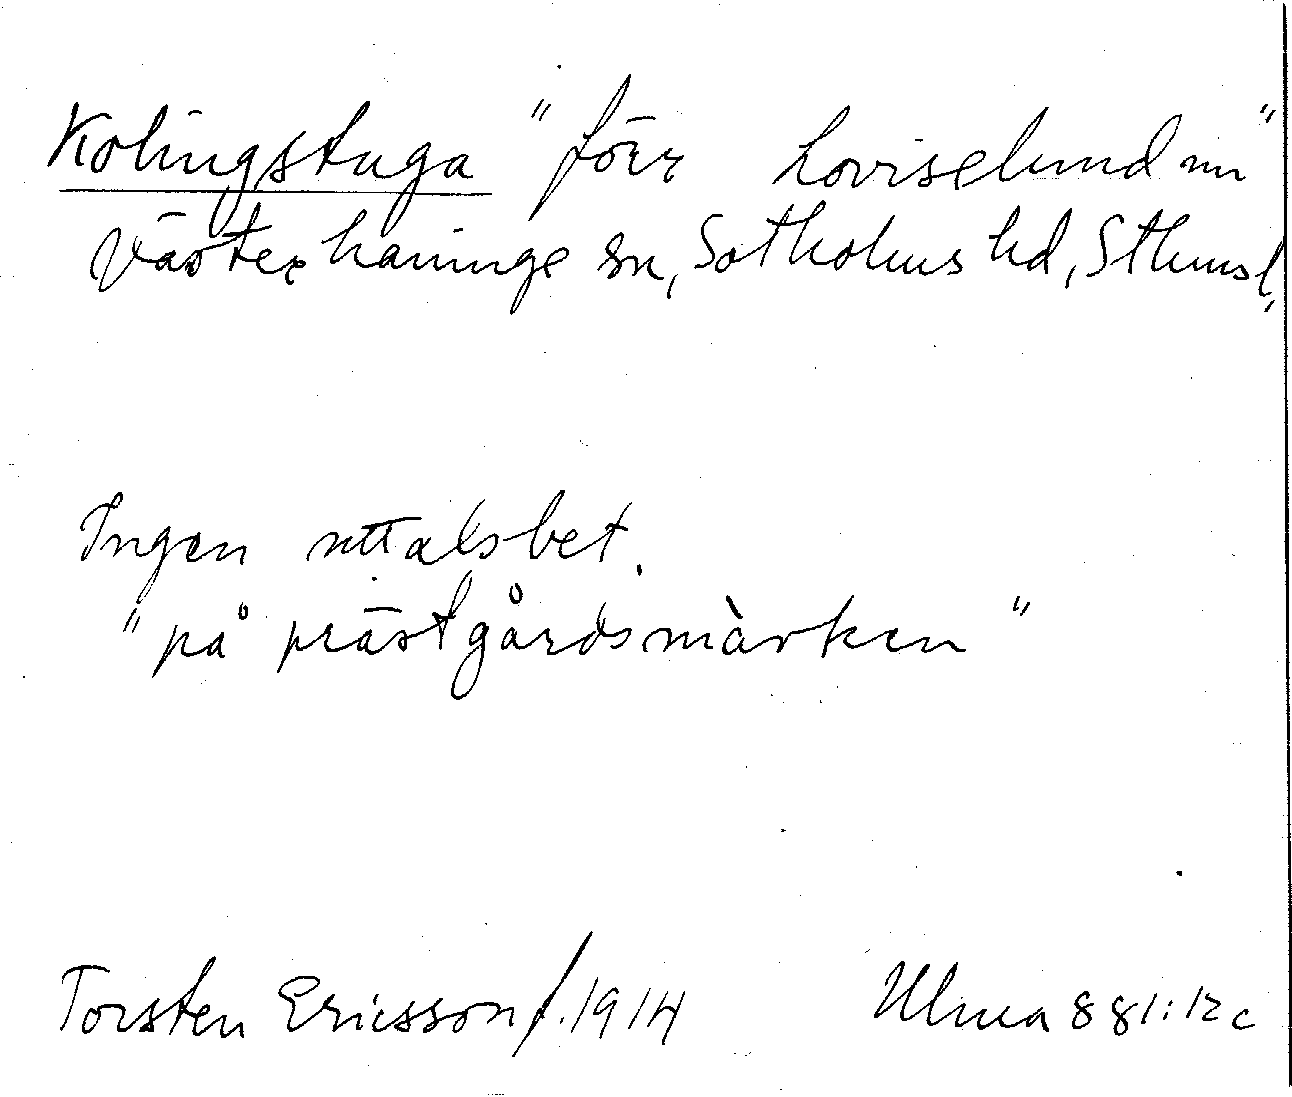 Kolingstuga "förr Loviselund nu"
Västerhaninge sn, Sotholms hd, Sthms l,
Ingen uttalsbet.
"på prästgårdsmàrken"
Torsten Ericsson f. 1914 Ulma 881:12c